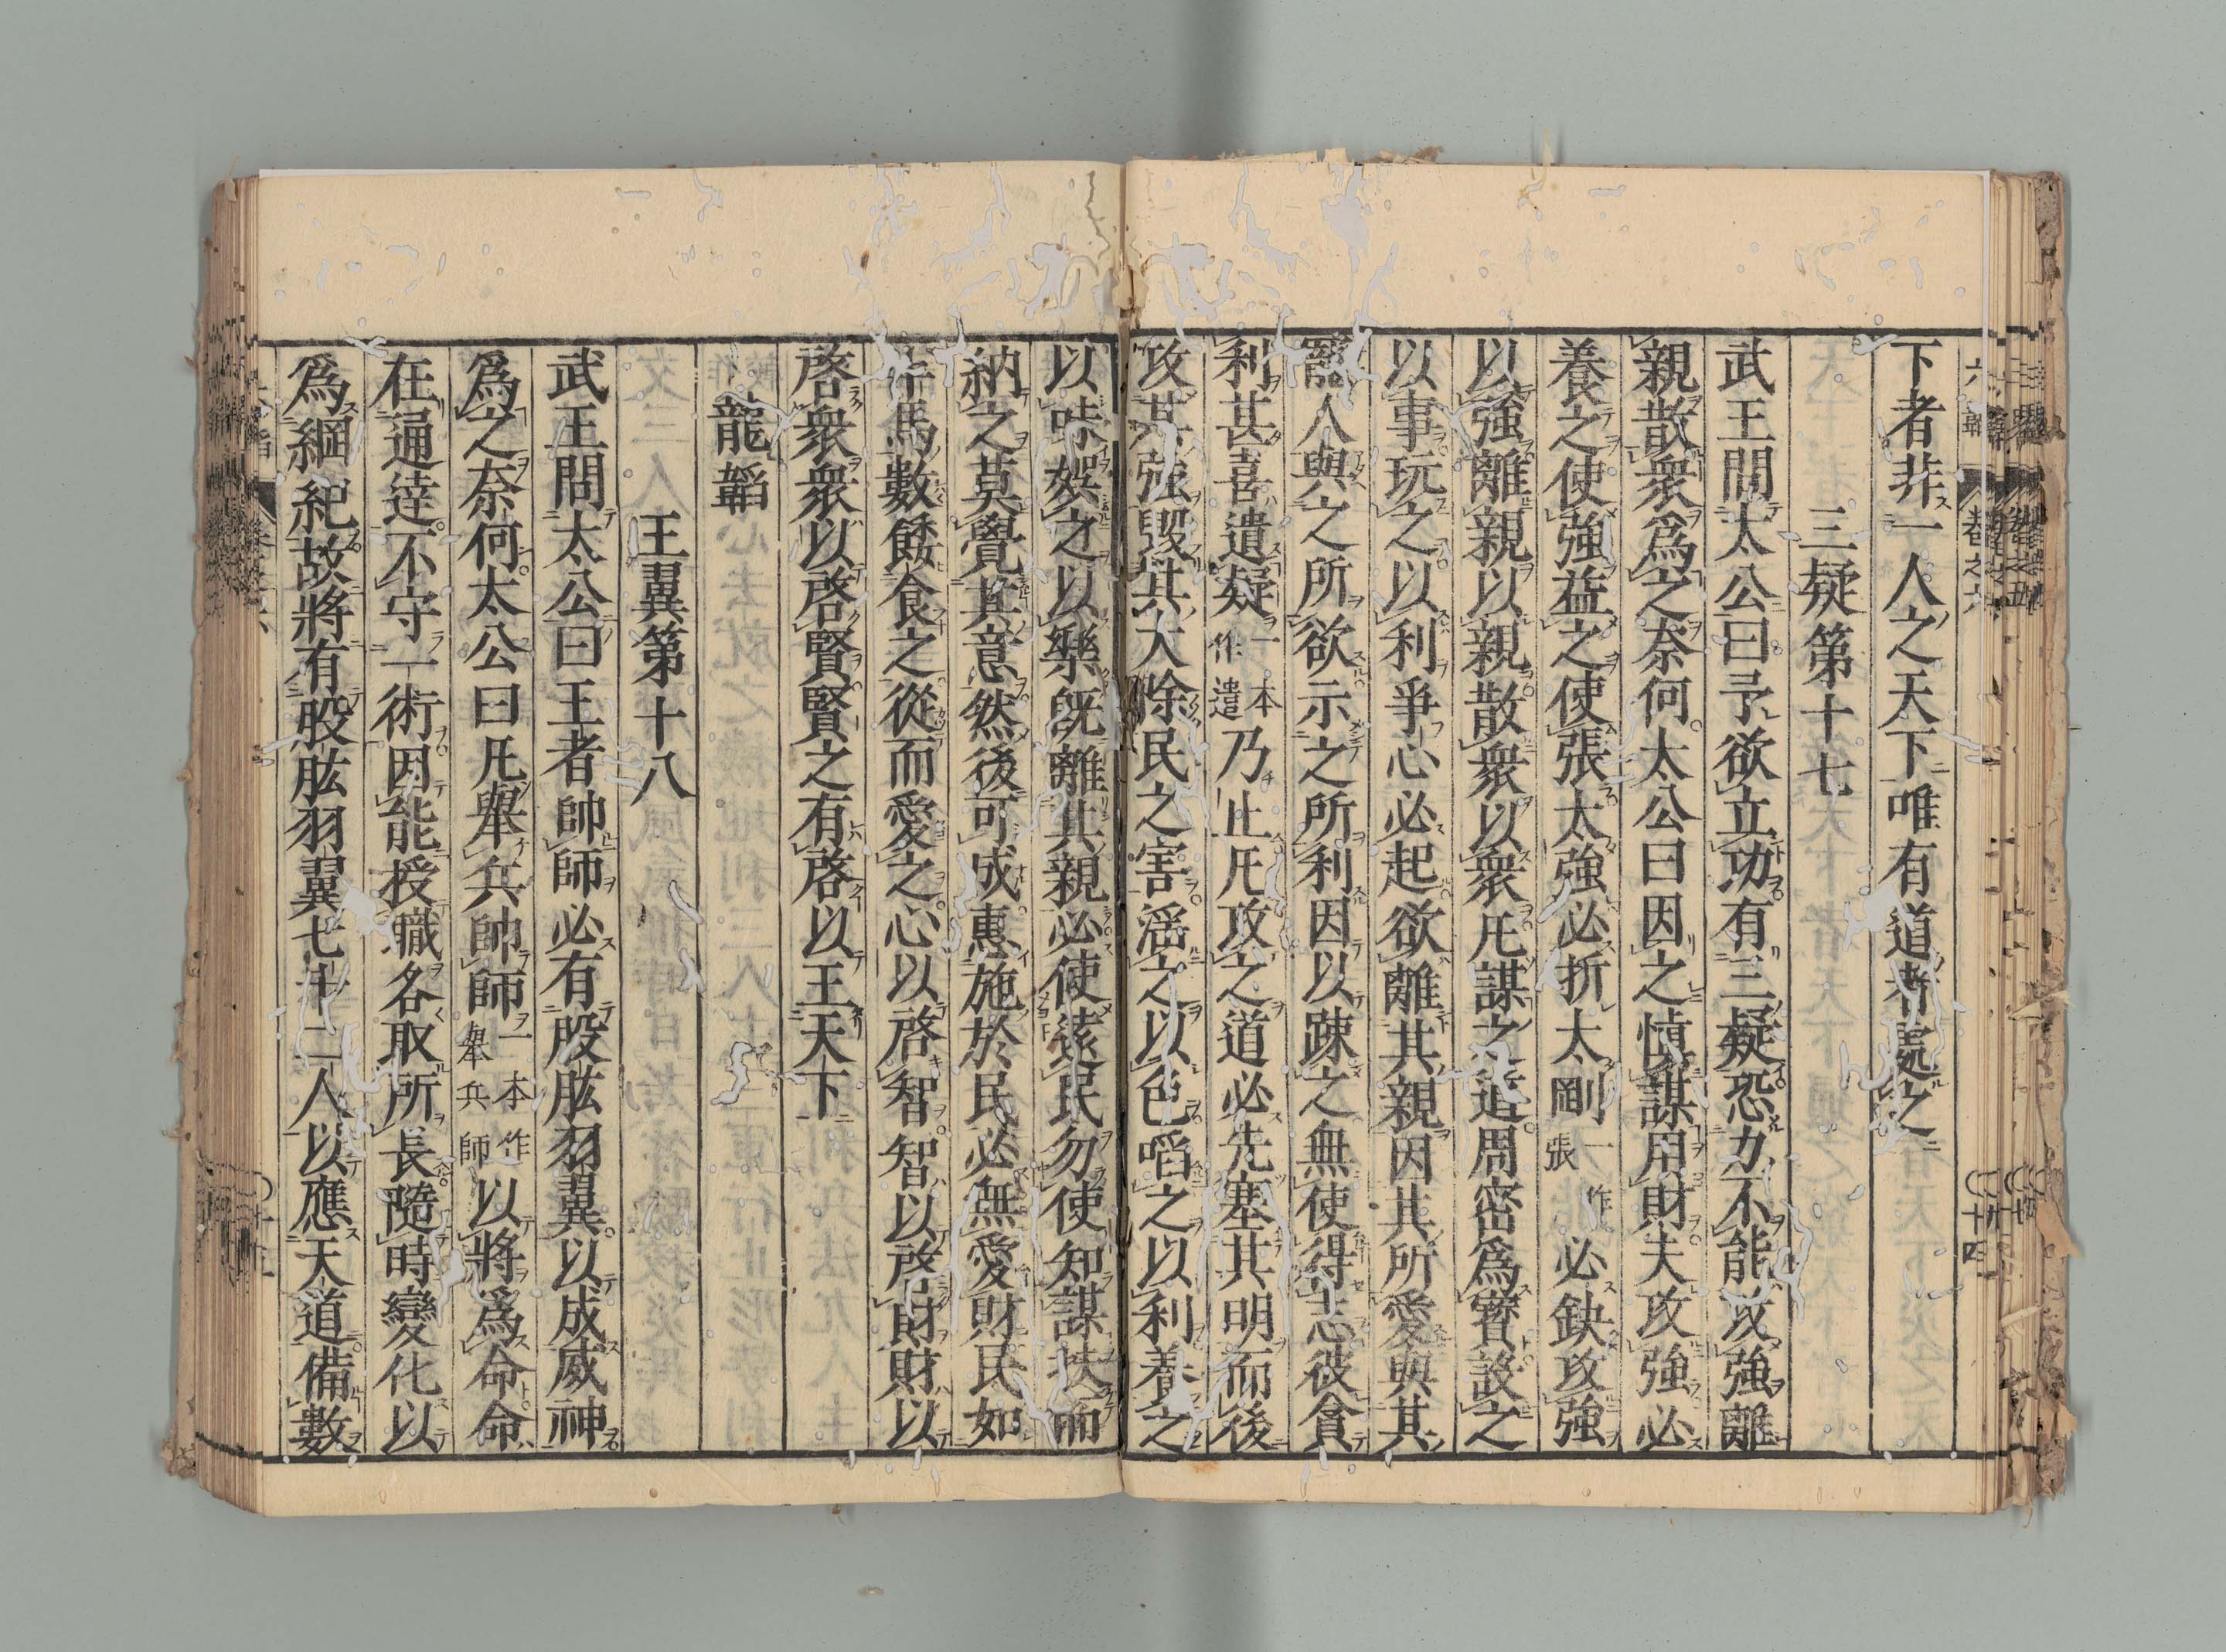 下者非一人之天下唯有道者處之
三疑第十七
武王問太公曰予欲立功有三疑恐力不能攻強離
親散衆爲之奈何太公曰因之愼謀用財夫攻強必
養之使強益之使張太強必折太剛一作張必鈌攻強
以強離親以親散衆以衆凡謀之道周密爲寳設之
以事玩之以利爭心必起欲離其親因其所愛與其
寵人與之所欲示之所利因以踈之無使得志彼貪
利甚喜遺疑一本作遣乃止凡攻之道必先塞其明而後
攻其強毀其大除民之害滛之以色啗之以利養之
以味娯之以樂旣離其親必使遠民勿使知謀扶而
納之莫覺其意然後可成惠施於民必無愛財民如
牛馬數餧食之從而愛之心以啓智智以啓財財以
啓衆衆以啓賢賢之有啓以王天下
龍韜
王翼第十八
武王問太公曰王者帥師必有股肱羽翼以成威神
爲之奈何太公曰凡舉兵帥師一本作舉兵師以將爲命命
在通逹不守一術因能授職各取所長隨時變化以
爲綱紀故將有股肱羽翼七十二人以應天道備數
六韜
卷之六
〇十四